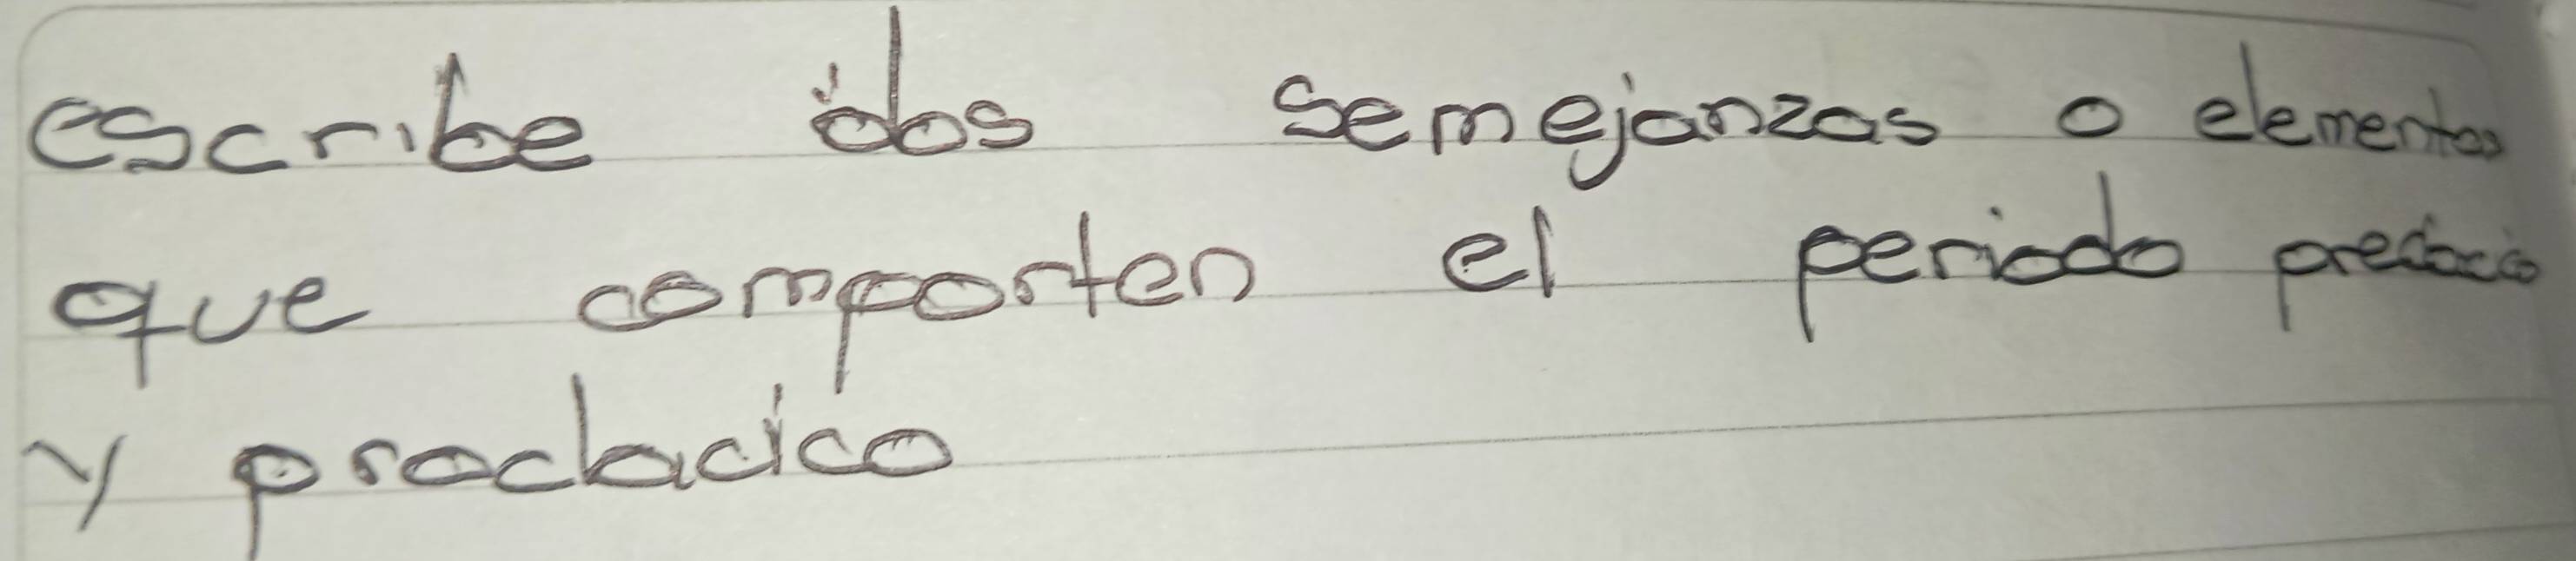 escribe dos semejanzas o elementos
que comparten el periodo preclacico
y proclacico